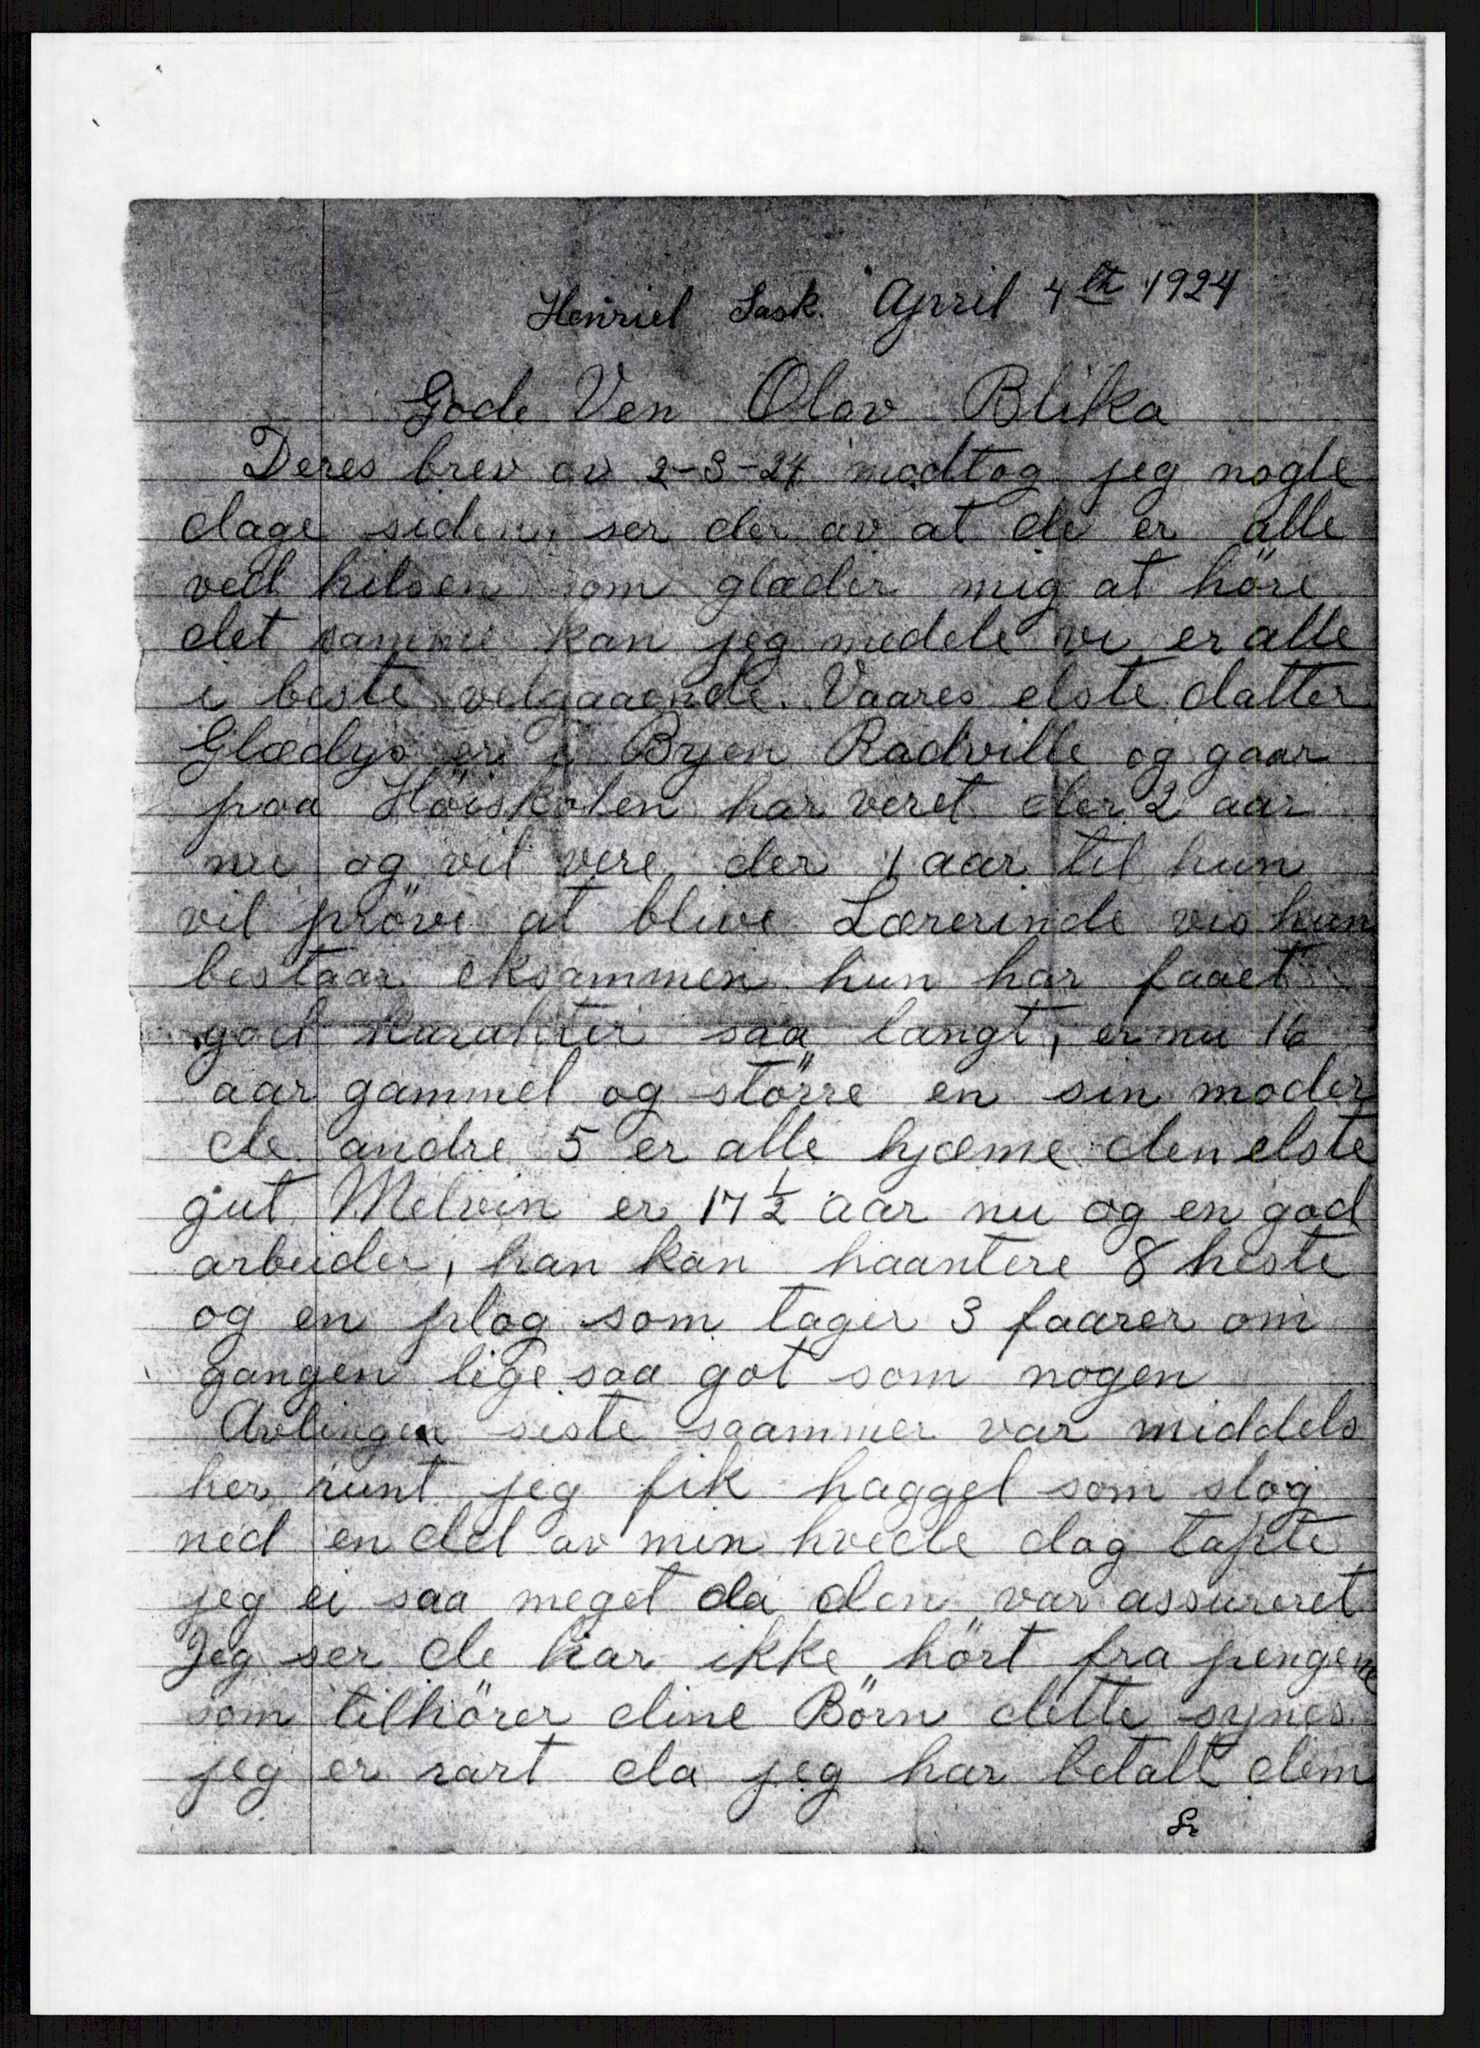 Henriel Sask. April 4th 1924
Gode Ven Olav Blika
Deres brev av 2-3-24 modtog jeg nogle
dage siden, ser der av at de er alle
ved helsen som glæder mig at höre
det samme kan jeg medele vi er alle
i beste velgaaende. Vaares elste datter
Glædys er i Byen Radville og gaar
paa Höiskolen har veret der 2 aar
nu og vil vere der 1 aar til hun
vil pröve at blive Lærerinde vis hun
bestaar eksammen hun har faaet
god karakter saa langt, er nu 16
aar gammel og större en sin moder
de andre 5 er alle hjæme den elste
gut Melvin er 17 1/2 aar nu og en god
arbeider, han kan haantere 8 heste
og en plog som tager 3 faarer om
gangen lige saa got som nogen
Avlingen siste saammer var middels
her runt jeg fik haggel som slog
ned en del av min hvede dog tapte
jeg ei saa meget da den var assureret
Jeg ser de har ikke hört fra pengene
som tilhörer dine Börn dette synes
jeg er rart da jeg har betalt dem